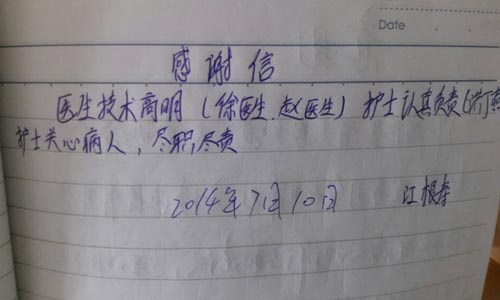 Date
感谢信
医生技术高明（徐医生.赵医生）护士认真负责（
护士关心病人，尽职,尽责
2014年7月10日 江根寿